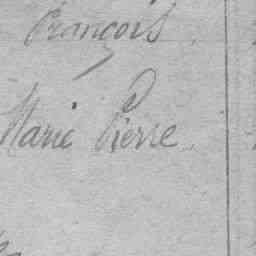 François
Marie Pierre